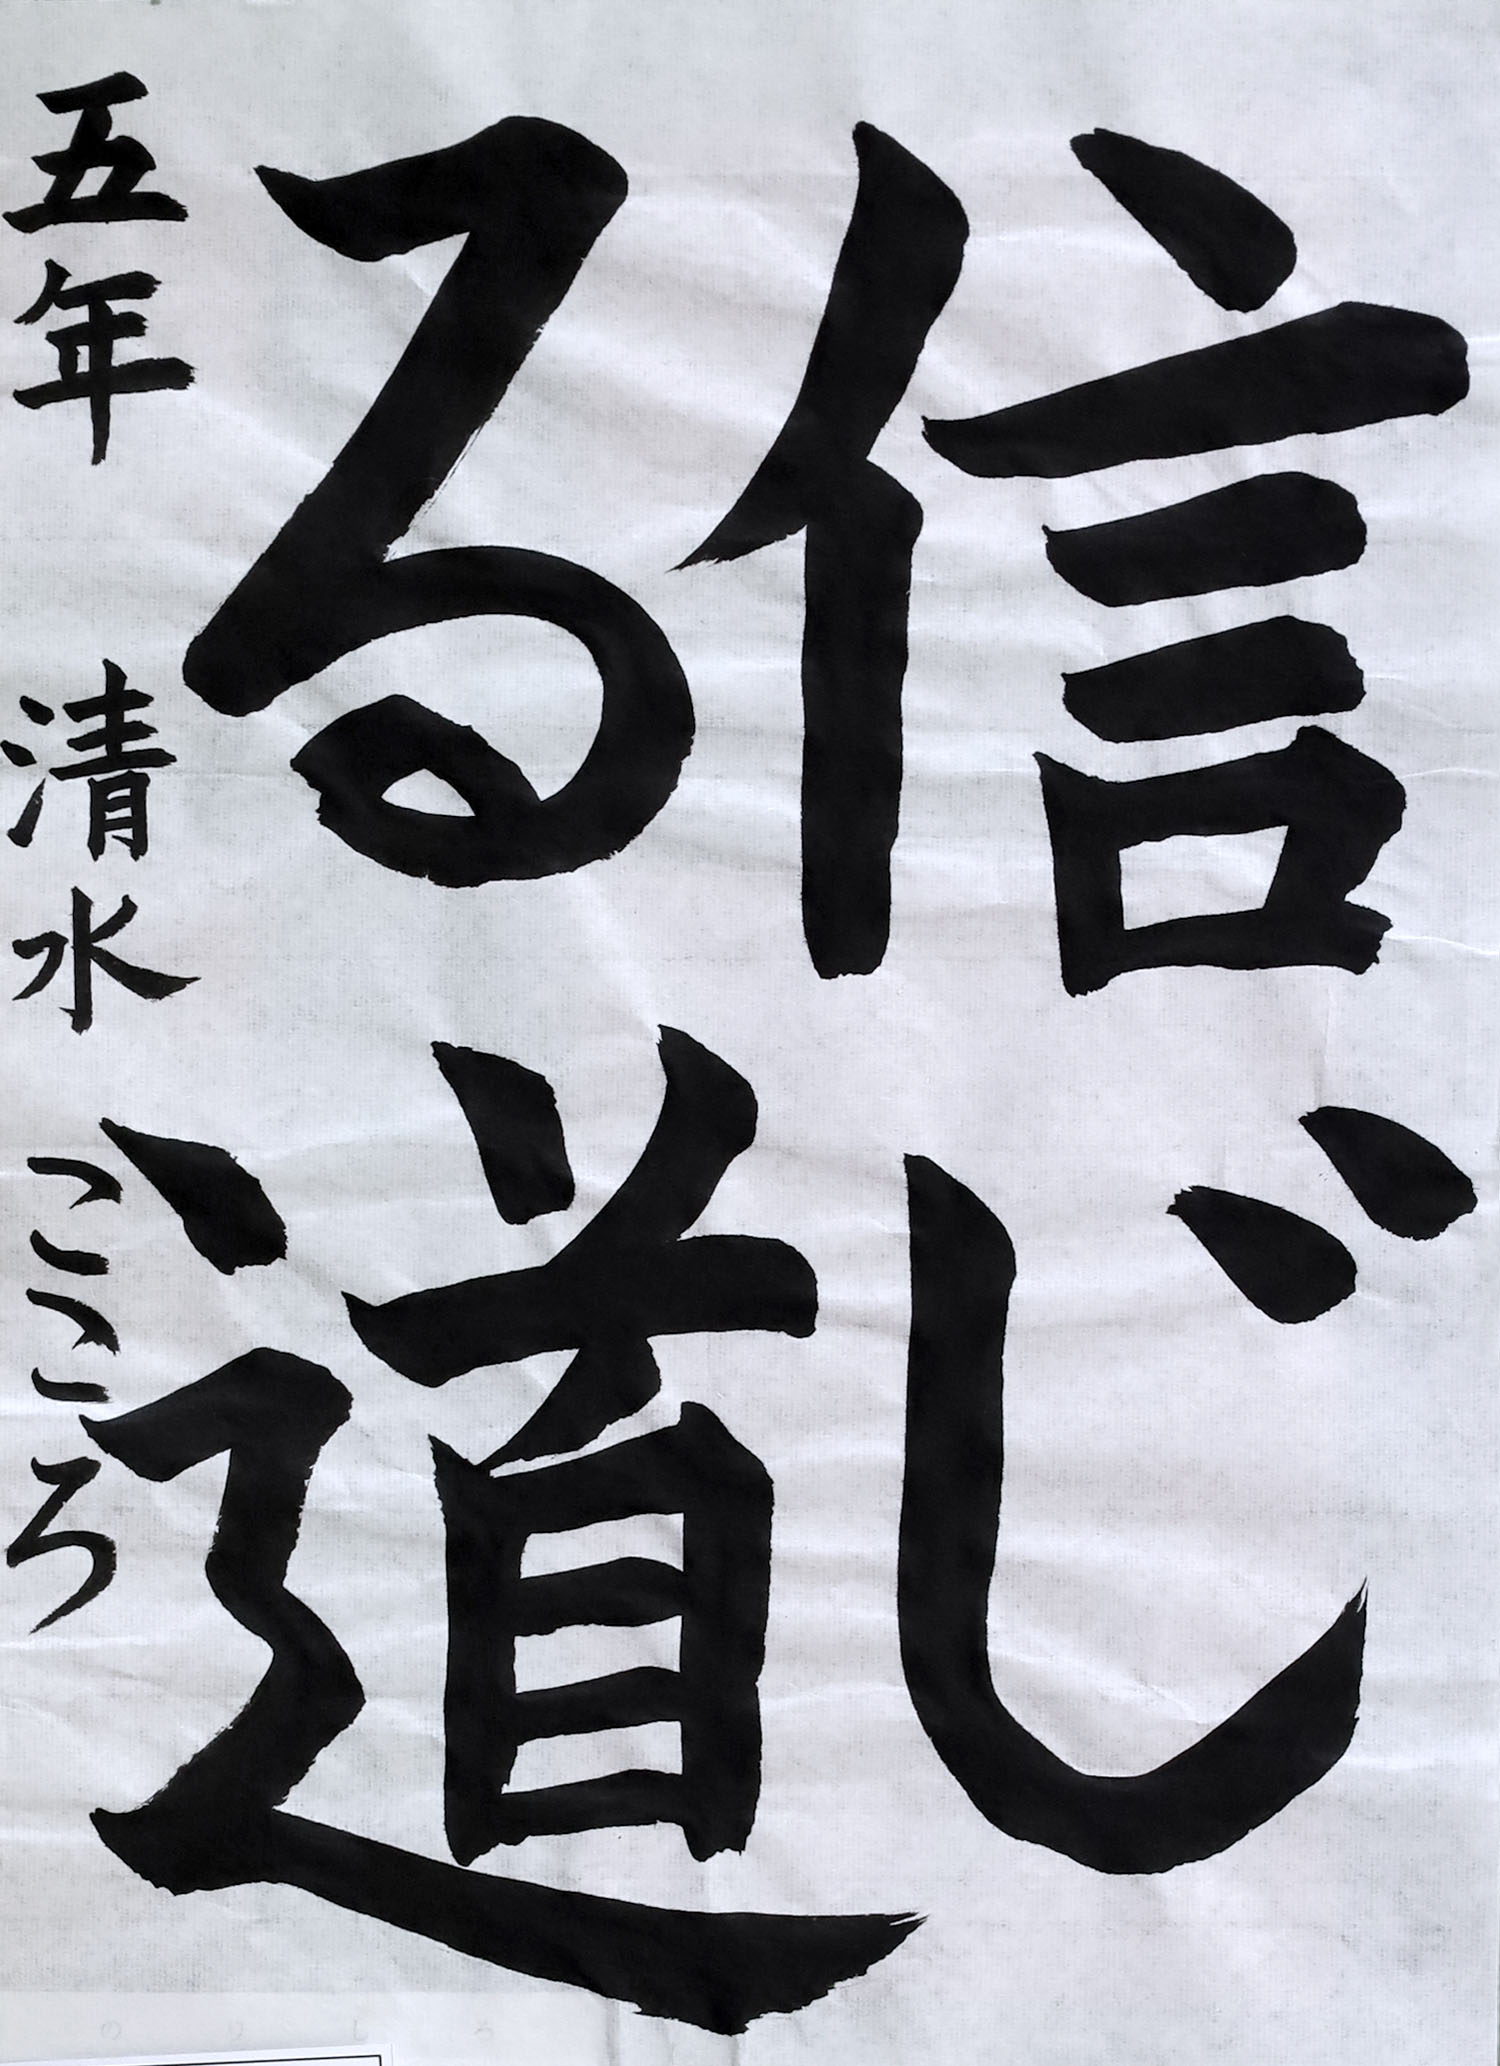 信じ
る道
五年 清水 こころ